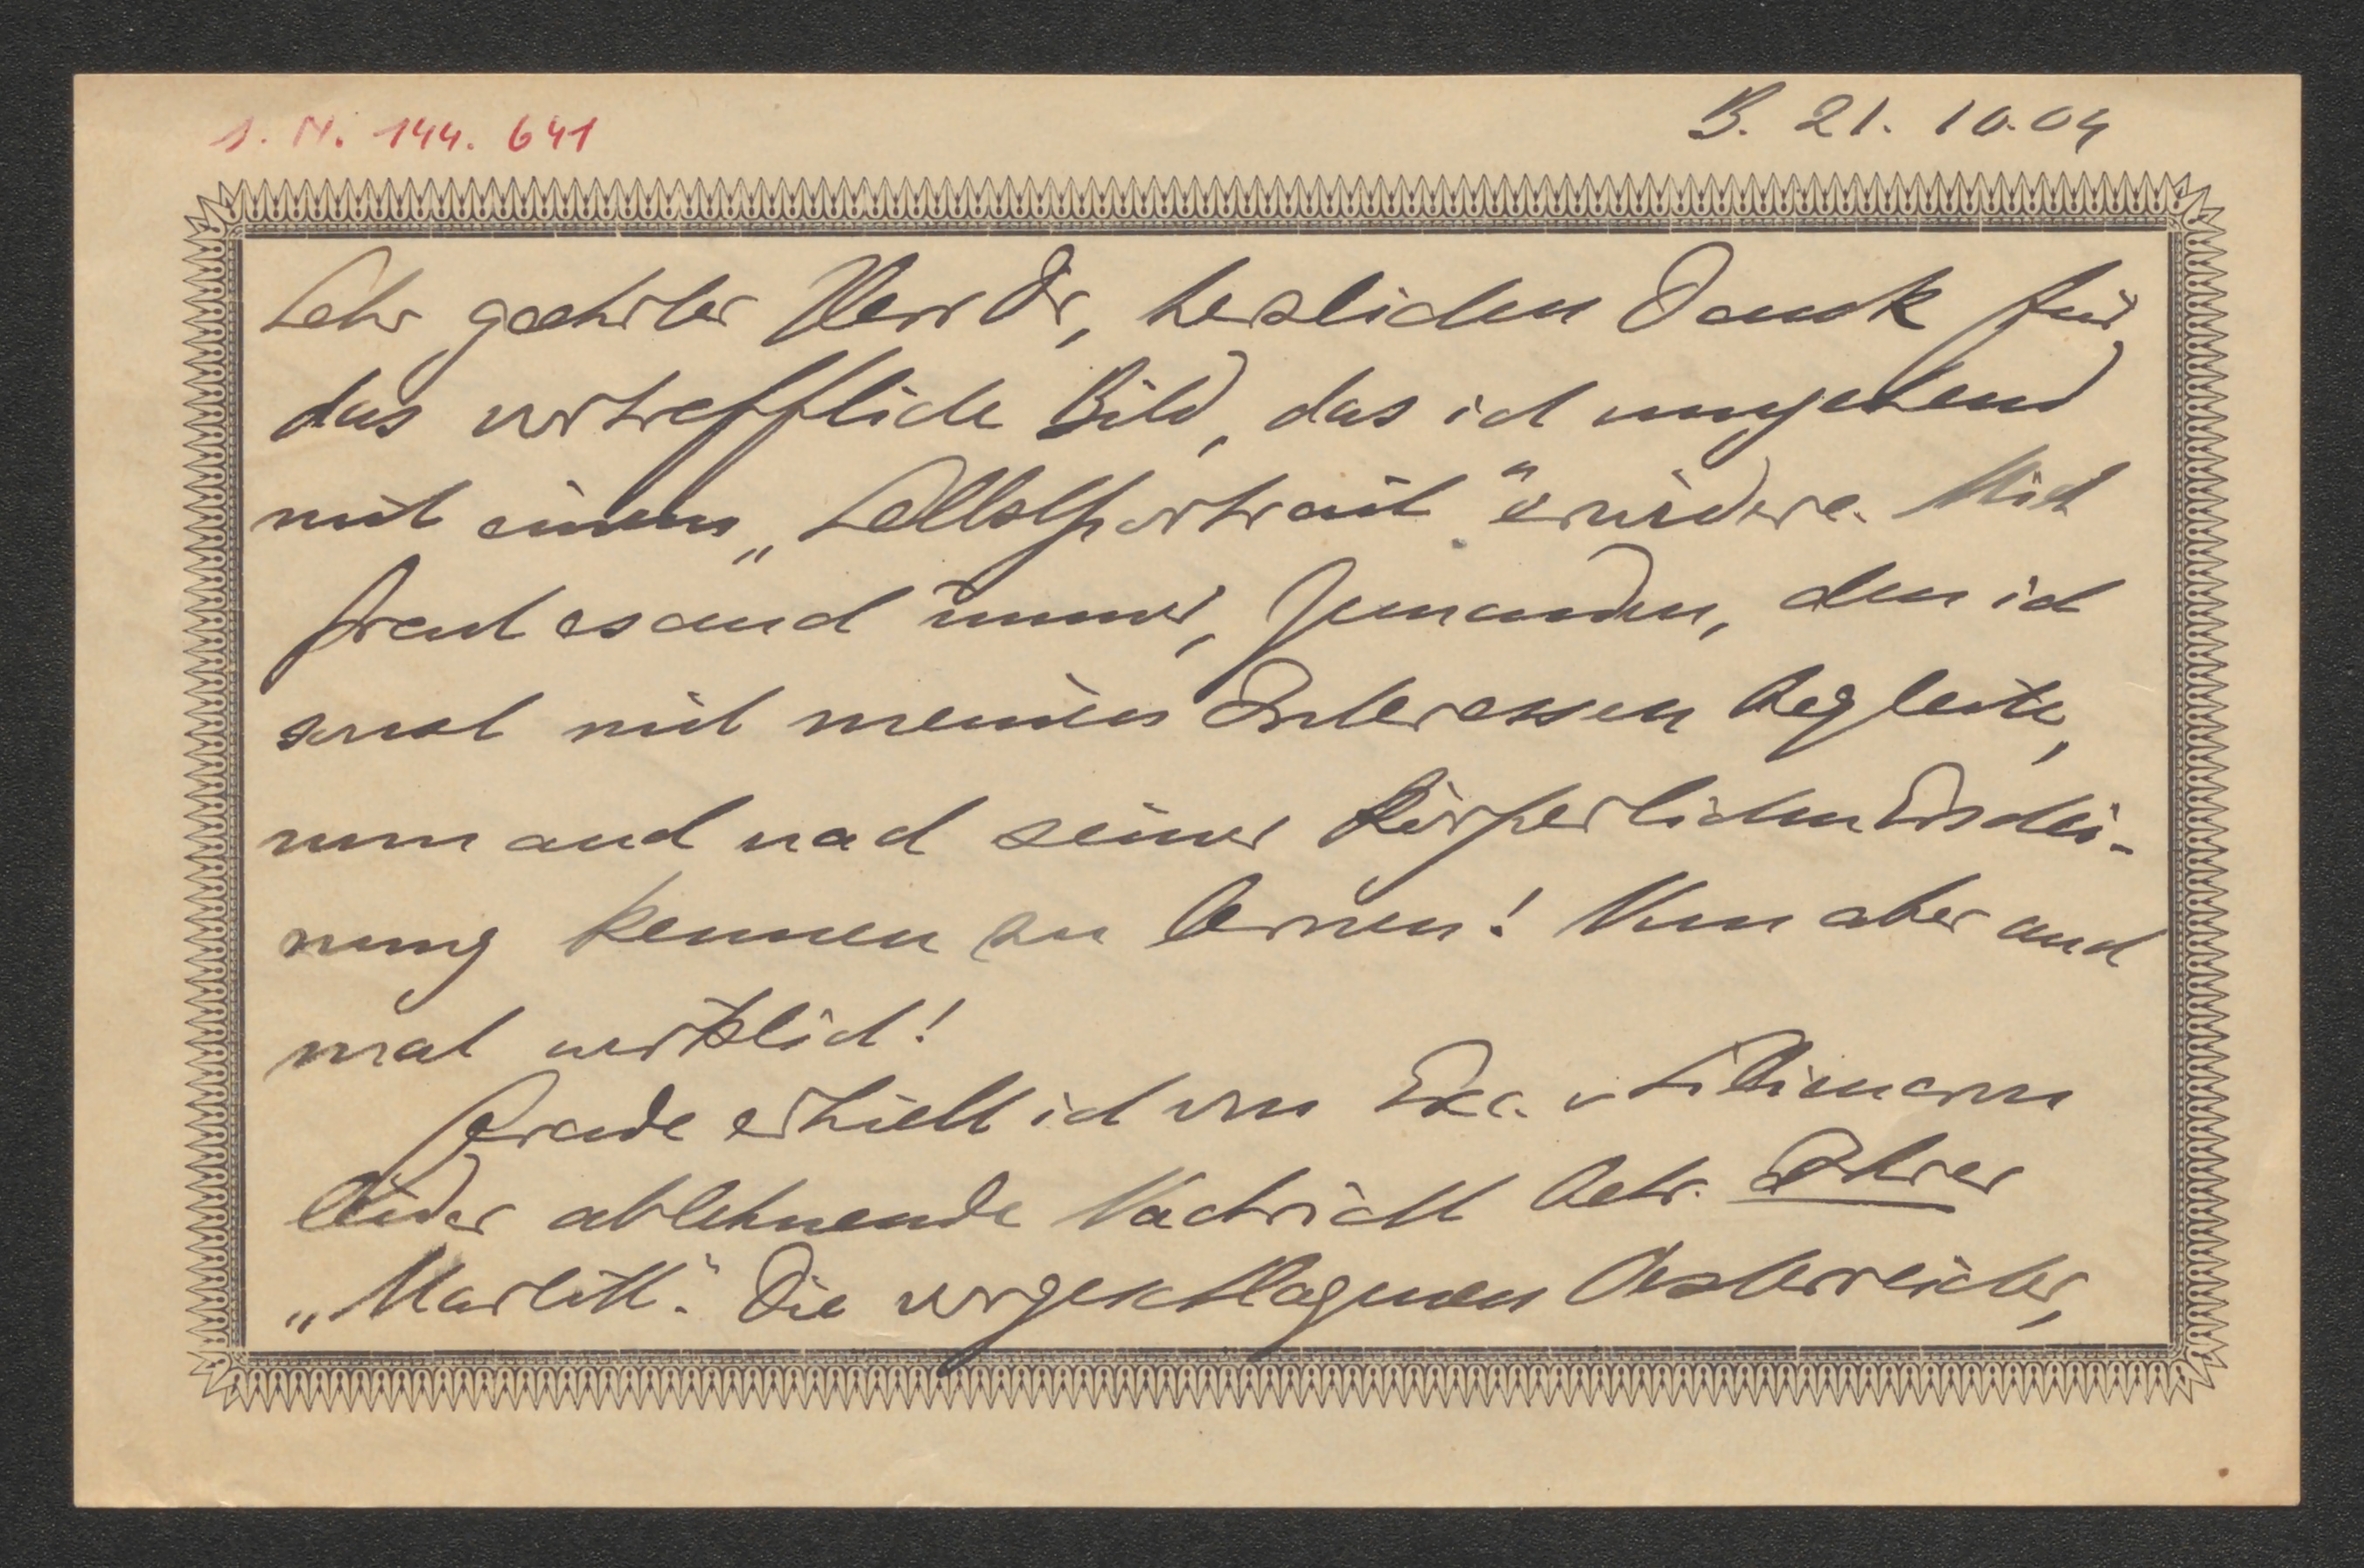 I. N. 144. 641
B. 21. 10. 04
Sehr geehrter Herr Dr, herzlichen Dank für
das vortreffliche Bild, das ich umgehend
mit einem „Selbstportrait" erwidere. Mich
freut es auch immer, Jemanden, den ich
sonst mit meinen Interessen begleite,
nun auch nach seiner körperlichen Erschei-
nung kennen zu lernen! Nun aber auch
mal wirklich!
Grade erhielt ich von Exc. v Liliencron
leider ablehnende Nachricht betr. Ihrer
„Marlitt". Die vorgeschlagenen Oesterreicher,